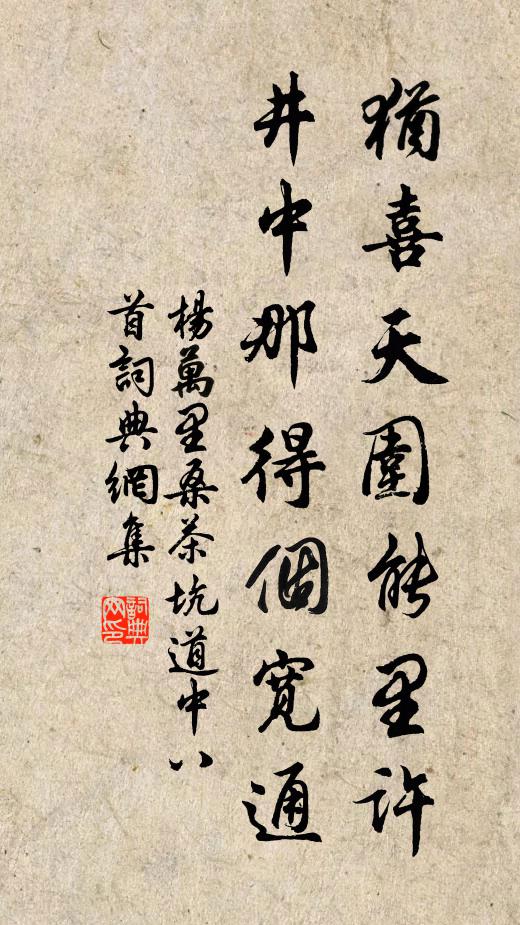 猶喜天圍能里許
井中那得個寬通
楊萬里桑茶坑道中八
首詞典網集
詞典
网印